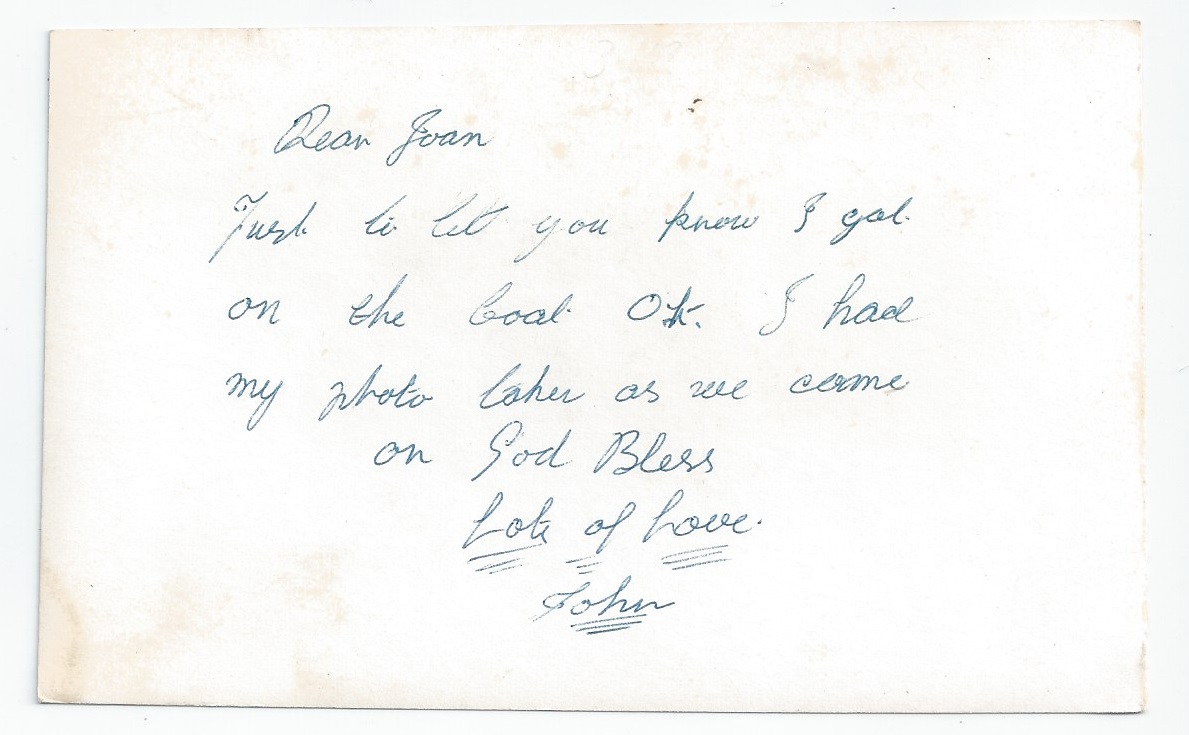 Dear Joan
Just to let you know I got
on the boat Ok. I had
my photo taken as we came
on God Bless
Lots of Love.
John